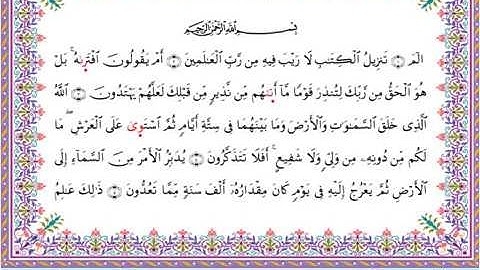 بِسْمِ ٱللَّهِ ٱلرَّحْمَٰنِ ٱلرَّحِيمِ
الٓمٓ ۝ تَنزِيلُ ٱلْكِتَٰبِ لَا رَيْبَ فِيهِ مِن رَّبِّ ٱلْعَٰلَمِينَ ۝ أَمْ يَقُولُونَ ٱفْتَرَىٰهُ ۚ بَلْ
هُوَ ٱلْحَقُّ مِن رَّبِّكَ لِتُنذِرَ قَوْمًا مَّآ أَتَىٰهُم مِّن نَّذِيرٍ مِّن قَبْلِكَ لَعَلَّهُمْ يَهْتَدُونَ ۝ ٱللَّهُ
ٱلَّذِى خَلَقَ ٱلسَّمَٰوَٰتِ وَٱلْأَرْضَ وَمَا بَيْنَهُمَا فِى سِتَّةِ أَيَّامٍ ثُمَّ ٱسْتَوَىٰ عَلَى ٱلْعَرْشِ ۖ مَا
لَكُم مِّن دُونِهِۦ مِن وَلِىٍّ وَلَا شَفِيعٍ ۚ أَفَلَا تَتَذَكَّرُونَ ۝ يُدَبِّرُ ٱلْأَمْرَ مِنَ ٱلسَّمَآءِ إِلَى
ٱلْأَرْضِ ثُمَّ يَعْرُجُ إِلَيْهِ فِى يَوْمٍ كَانَ مِقْدَارُهُۥٓ أَلْفَ سَنَةٍ مِّمَّا تَعُدُّونَ ۝ ذَٰلِكَ عَٰلِمُ